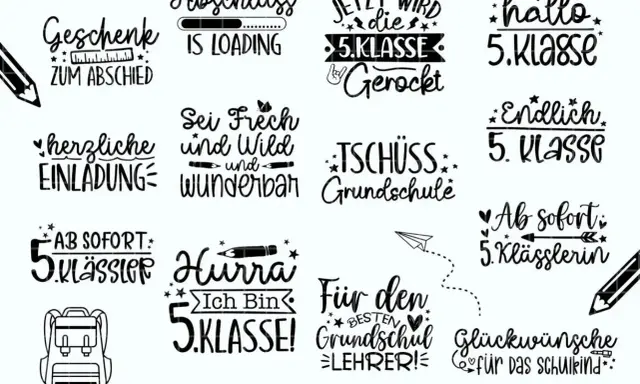 Geschenk
ZUM ABSCHIED
Abschluss
IS LOADING
JETZT WIRD
die
5.KLASSE
Gerockt
hallo
5.Klasse
herzliche
EINLADUNG
Sei Frech
und Wild
und
wunderbar
TSCHÜSS
Grundschule
Endlich
5. Klasse
AB SOFORT
5.KLÄSSLER
Hurra
Ich Bin
5.KLASSE!
Für den
BESTEN
Grundschul
LEHRER!
Ab sofort
5.Klässlerin
Glückwünsche
für das schulkind